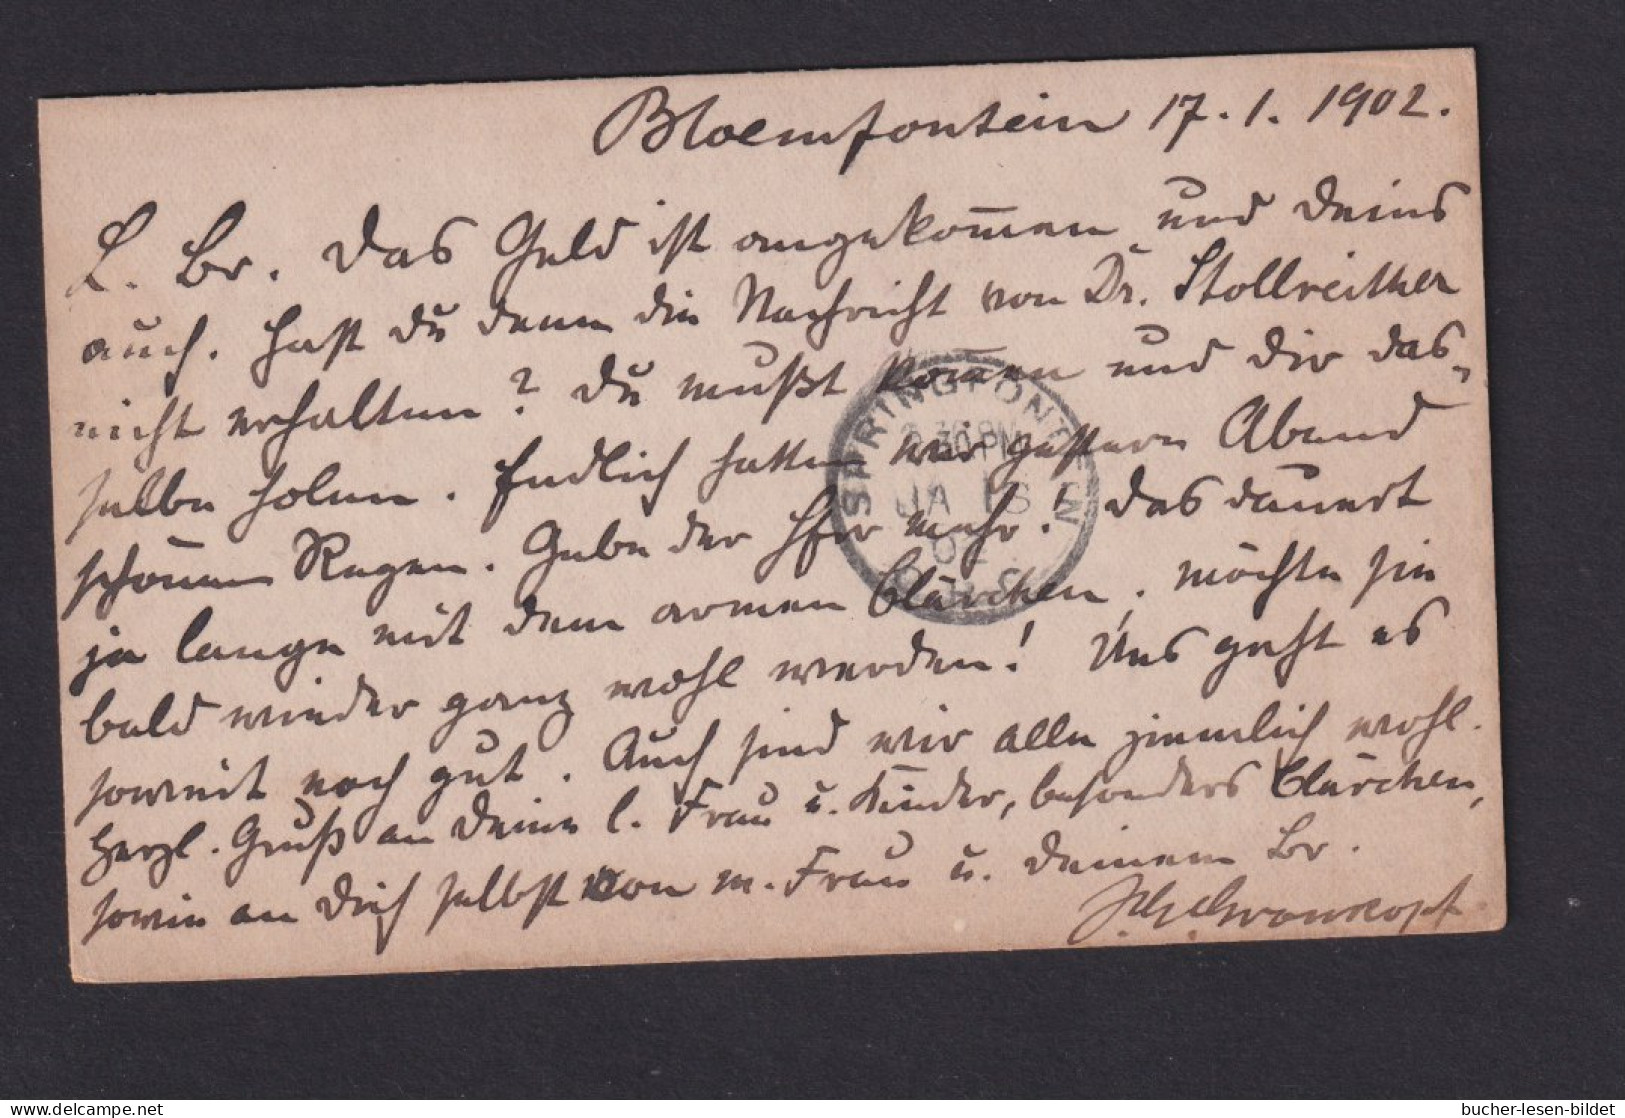 Bloemfontein 17.1.1902.
L. Br. Das Geld ist angekom̄en und Deins
auch. Hast du denn die Nachricht von Dr. Stollreither
nicht erhalten? Du mußt kom̄en und dir das-
selbe holen. Endlich hatten wir gestern Abend
schönen Regen. Gebe der Herr mehr! Das dauert
ja lange mit dem armen Clärchen, möchte sie
bald wieder ganz wohl werden! Uns geht es
soweit noch gut. Auch sind wir alle ziemlich wohl.
Herzl. Gruß an Deine l. Frau u. Kinder, besonders Clärchen,
sowie an Dich selbst von m. Frau u. Deinem Br.
SPRINGFONTEIN
JA 18
02
bucher-lesen-bildet